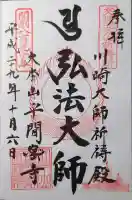 奉拝
川崎大師祈祷殿
弘法大師
大本山平間寺
平成二九年十月六日